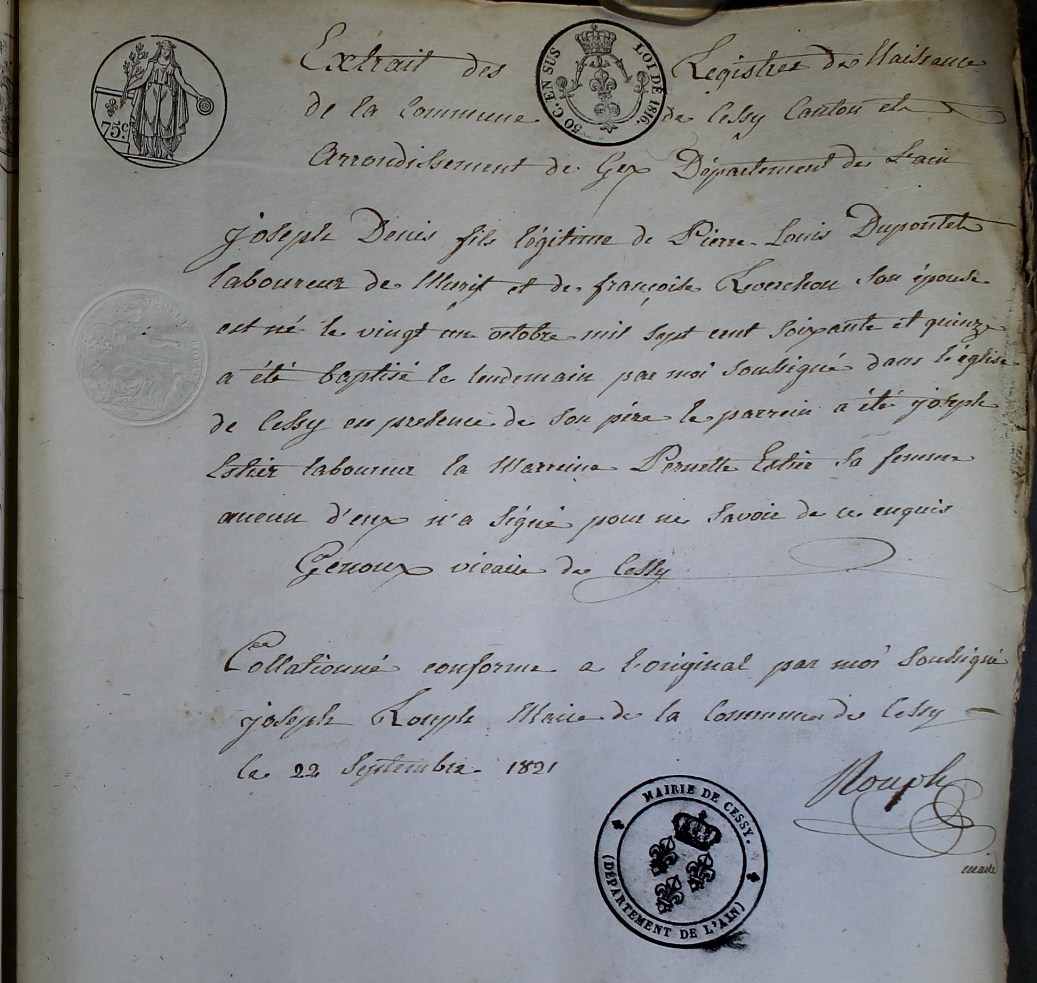 75c.
50 C. EN SUS LOI DE 1816.
Extrait des Registres de Naissance
de la Commune de Cessy Canton et
Arrondissement de Gex Département de L'ain
joseph Denis fils légitime de Pierre-Louis Dupontet
laboureur de et de françoise Reverchon son épouse
est né le vingt un octobre mil sept cent soixante et quinze
a été baptisé le lendemain par moi soubsigné dans l'église
de Cessy en presence de son père le parrein a été joseph
Estier laboureur la Marreine Pernette Estier sa femme
aucun d'eux n'a signé pour ne savoir de ce enquis
Genoux vicaire de Cessy
Collationné conforme a l'original par moi soubsigné
joseph Rouph Maire de la Commune de Cessy
le 22 Septembre 1821
Rouph
maire
MAIRIE DE CESSY.
(DÉPARTEMENT DE L'AIN)